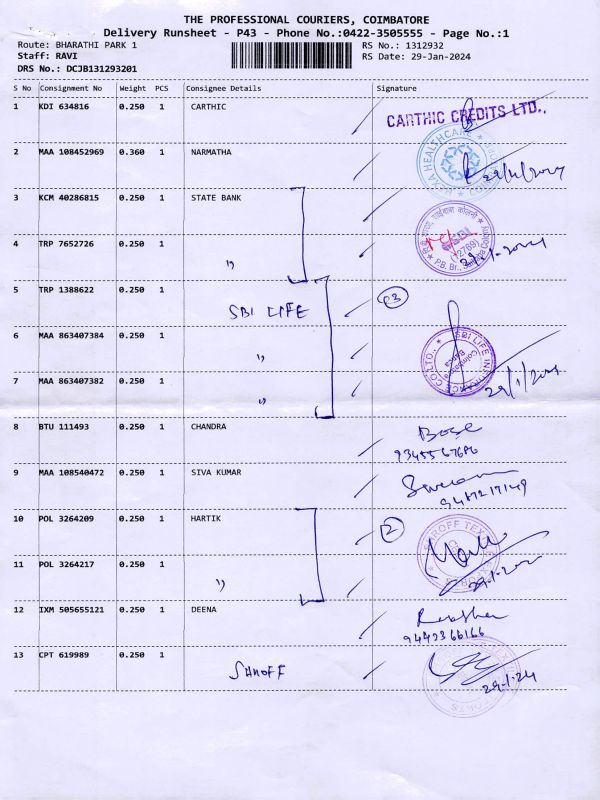 THE PROFESSIONAL COURIERS, COIMBATORE
Delivery Runsheet - P43 - Phone No.:0422-3505555 - Page No.:1
Route: BHARATHI PARK 1
RS No.: 1312932
Staff: RAVI
RS Date: 29-Jan-2024
DRS No.: DCJB131293201
S No Consignment No Weight PCS Consignee Details Signature
1 KDI 634816 0.250 1 CARTHIC
CARTHIC CREDITS LTD.,
2 MAA 108452969 0.360 1 NARMATHA
HEALTHCARE
3 KCM 40286815 0.250 1 STATE BANK
4 TRP 7652726 0.250 1 〃
SBI
(12769)
P.B. Br., Saibaba Colony
5 TRP 1388622 0.250 1 SBI LIFE
3
6 MAA 863407384 0.250 1 〃
SBI LIFE INSURANCE CO.LTD.
Coimbatore
7 MAA 863407382 0.250 1 〃
29/1/2024
8 BTU 111493 0.250 1 CHANDRA
Bose
9345567686
9 MAA 108540472 0.250 1 SIVA KUMAR
9487217149
10 POL 3264209 0.250 1 HARTIK
2
SHROFF TEX
11 POL 3264217 0.250 1 〃
12 IXM 505655121 0.250 1 DEENA
9442366166
13 CPT 619989 0.250 1 SHROFF
29.1.24